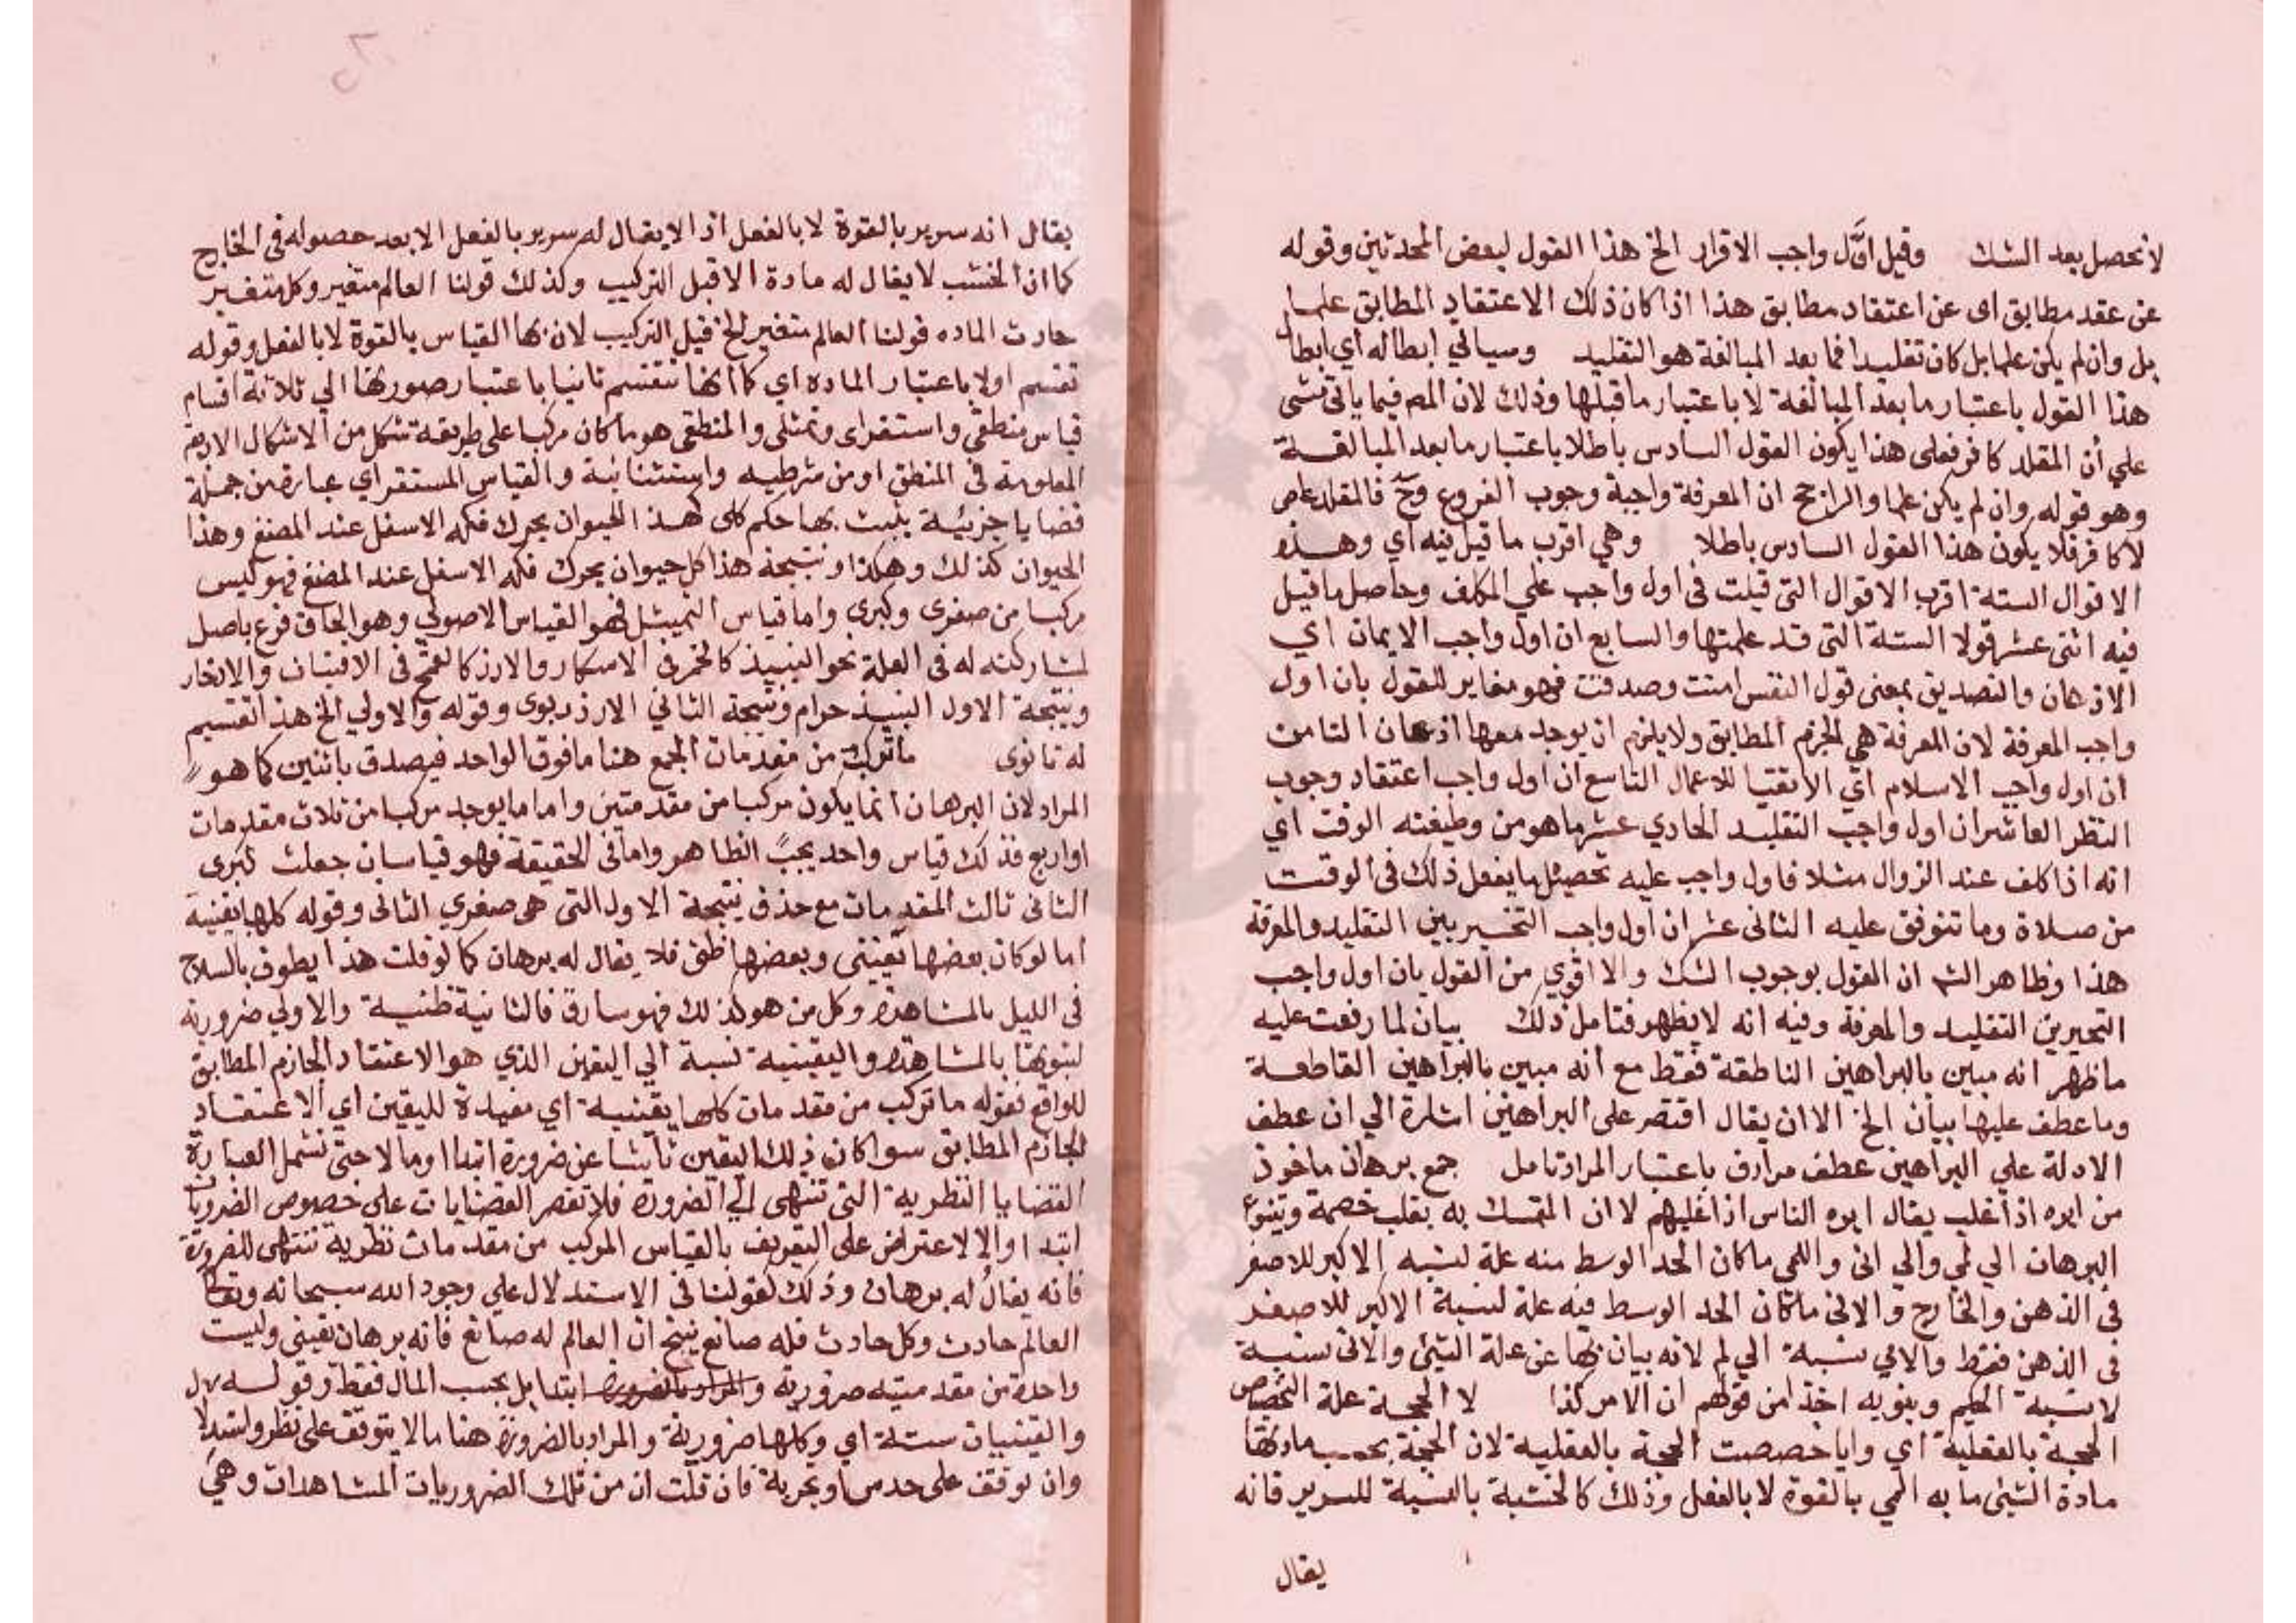 لا تحصل بعد الشك وقيل اول واجب الاقرار الخ هذا القول لبعض المحدثين وقوله
عن عقد مطابق اى عن اعتقاد مطابق هذا اذا كان ذلك الاعتقاد المطابق علما
بل وان لم يكن علما بل كان تقليدا فما بعد المبالغة هو التقليد وسياتي ابطاله اي ابطال
هذا القول باعتبار ما بعد المبالغة لا باعتبار ما قبلها وذلك لان المص فيما ياتى مشى
علي أن المقلد كافر فعلى هذا يكون القول السادس باطلا باعتبار ما بعد المبالغة
وهو قوله وان لم يكن علما والراجح ان المعرفة واجبة وجوب الفروع وح فالمقلد عاص
لا كافر فلا يكون هذا القول السادس باطلا وهي اقرب ما قيل فيه اي وهذه
الاقوال الستة اقرب الاقوال التى قيلت فى اول واجب علي المكلف وحاصل ما قيل
فيه اثنى عشر قولا الستة التى قد علمتها والسابع ان اول واجب الايمان اي
الاذعان والتصديق بمعنى قول النفس امنت وصدقت فهو مغاير للقول بان اول
واجب المعرفة لان المعرفة هي الجزم المطابق ولا يلزم ان يوجد معها اذعان الثامن
ان اول واجب الاسلام اي الانقياد للاعمال التاسع ان اول واجب اعتقاد وجوب
النظر العاشر ان اول واجب التقليد الحادي عشر ما هو من وظيفته الوقت اي
انه اذا كلف عند الزوال مثلا فاول واجب عليه تحصيل ما يفعل ذلك فى الوقت
من صلاة وما تتوقف عليه الثانى عشر ان اول واجب التخيير بين التقليد والمعرفة
هذا وظاهر الش ان القول بوجوب الشك والا اقوي من القول بان اول واجب
التخيير بين التقليد والمعرفة وفيه انه لا يظهر فتامل ذلك بيان لما رفعت عليه
ما ظهر انه مبين بالبراهين الناطقة فقط مع انه مبين بالبراهين القاطعة
وما عطف عليها بيان الخ الا ان يقال اقتصر على البراهين اشارة الي ان عطف
الادلة علي البراهين عطف مرادف باعتبار المراد تامل جمع برهان ماخوذ
من ابره اذا غلب يقال ابره الناس اذا غلبهم لان المتمسك به يغلب خصمة ويتنوع
البرهان الي لمي والي انى واللمى ما كان الحد الوسط منه علة لنسبه الاكبر للاصغر
فى الذهن والخارج والانى ما كان الحد الوسط فيه علة لنسبة الاكبر للاصغر
فى الذهن فقط والامي نسبة الي لم لانه بيان بها عن علة الشيئ والانى نسبة
لا نسبة الميم وبنويه اخذ من قولهم ان الامر كذا لا الحجة علة التخصص
الحجة بالعقلية اي وايا خصصت الحجة بالعقلية لان الحجة بحسب مادتها
مادة الشيئ ما به الشي بالقوة لا بالفعل وذلك كالخشبة بالنسبة للسرير فانه
يقال
يقال انه سرير بالقوة لا بالفعل اذ لا يقال له سرير بالفعل الا بعد حصوله فى الخارج
كما ان الخشب لا يقال له مادة الا قبل التركيب وكذلك قولنا العالم متغير وكل متغير
حادث الماده قولنا العالم متغير الخ قبل التركيب لان بها القياس بالقوة لا بالفعل وقوله
تقسم اولا باعتبار الماده اي كما انها تنقسم ثانيا باعتبار صورتها الي ثلاثة اقسام
قياس منطقي واستقراى وتمثلى والمنطقى هو ما كان مركبا على طريقة شكل من الاشكال الاربع
المعلومة فى المنطق او من شرطيه واستثنائية والقياس المستقراي عبارة من جملة
قضايا جزئية يثبت بها حكم كلى كهذا الحيوان يحرك فكه الاسفل عند المضغ وهذا
الحيوان كذلك وهكذا ونتيجة هذا كل حيوان يحرك فكه الاسفل عند المضغ فهو ليس
مركبا من صغرى وكبرى واما قياس التمييثل فهو القياس الاصولي وهو الحاق فرع باصل
لمشاركته له فى العلة نحو النبيذ كالخمر فى الاسكار والارز كالقمح فى الاقتيات والادخار
ونتيجة الاول النبيذ حرام ونتيجة الثاني الارز ربوى وقوله والاولي الخ هذ التقسيم
له ثانوى ما تركب من مقدمات الجمع هنا ما فوق الواحد فيصدق باثنين كما هو
المراد لان البرهان انما يكون مركبا من مقدمتين واما ما يوجد مركبا من ثلاث مقدمات
او اربع فذلك قياس واحد بحسب الظاهر واما فى الحقيقة فهو قياسان جعلت كبرى
الثانى ثالث المقدمات مع حذف نتيجة الاول التى هى صغري الثانى وقوله كلها يقينية
اما لو كان بعضها يقينى وبعضها ظنى فلا يقال له برهان كما لو قلت هذا يطوف بالسلاح
فى الليل بالمشاهدة وكل من هو كذلك فهو سارق فالثانية ظنية والاولي ضرورية
لثبوتها بالمشاهدة واليقينية نسبة الي اليقين الذي هو الاعتقاد الجازم المطابق
للواقع فقوله ما تركب من مقدمات كلها يقينية اي مفيدة لليقين اي الاعتقاد
الجازم المطابق سوا كان ذلك اليقين ناشئا عن ضرورة ابتدا او مالا حتى تشمل العبارة
القضايا النظرية التى تنتهى الي الضرورة فلا تقصر القضايات على خصوص الضروريات
ابتدا والا لاعتراض على التعريف بالقياس المركب من مقدمات نظرية تنتهى للضرورة
فانه يقال له برهان وذلك كقولنا فى الاستدلال علي وجود الله سبحانه وتعالى
العالم حادث وكل حادث فله صانع ينتج ان العالم له صانع فانه برهان يقينى وليست
واحدة من مقدمتيه ضرورية والمراد بالضرورة ابتدا بل بحسب المال فقط وقوله
واليقينيات ستة اي وكلها ضرورية والمراد بالضرورة هنا ما لا يتوقف على نظر واستدلا
وان توقف على حدس او تجربة فان قلت ان من تلك الضروريات المشاهدات وهي